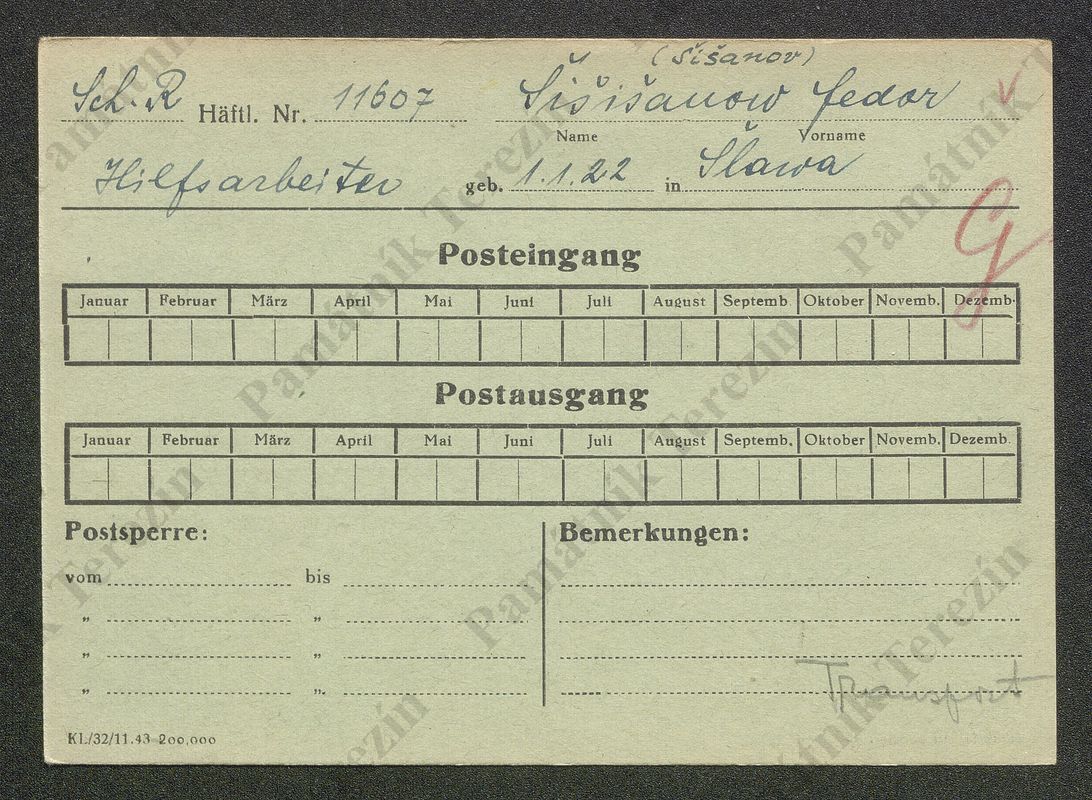 (Šišanov)
Sch. R Häftl. Nr. 11607 Šišišanow Fedor
Name Vorname
Hilfsarbeiter geb. 1.1.22 in Šlawa
G
Posteingang
Januar Februar März April Mai Juni Juli August Septemb. Oktober Novemb. Dezemb.
Postausgang
Januar Februar März April Mai Juni Juli August Septemb. Oktober Novemb. Dezemb.
Postsperre: Bemerkungen:
vom bis
„ „
„ „
„ „
Transport
KL/32/11.43 200,000
Památník Terezín